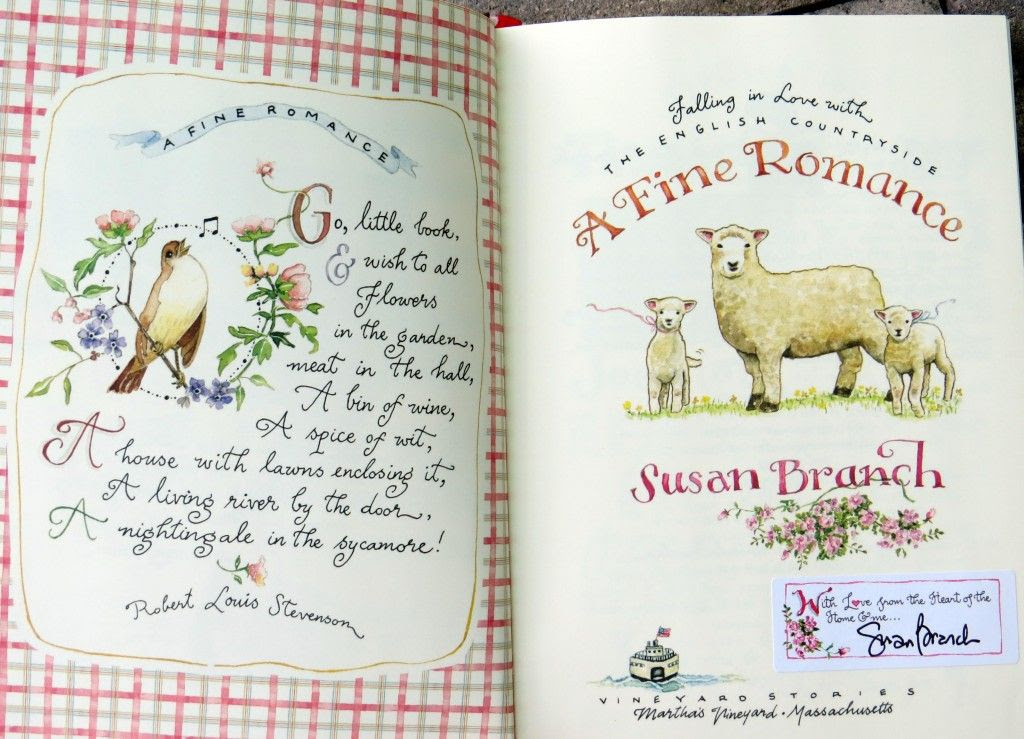 A FINE ROMANCE
Go, little book,
& wish to all
Flowers
in the garden,
meat in the hall,
A bin of wine,
A spice of wit,
A house with lawns enclosing it,
A living river by the door,
A nightingale in the sycamore!
Robert Louis Stevenson
Falling in Love with
THE ENGLISH COUNTRYSIDE
A Fine Romance
Susan Branch
With Love from the Heart of the
Home & me...
Susan Branch
VINEYARD STORIES
Martha's Vineyard · Massachusetts